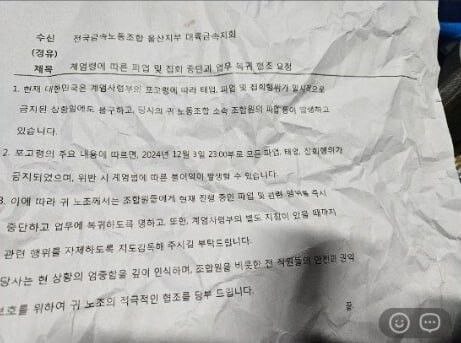 수신 전국금속노동조합 울산지부 대륙금속지회
(경유)
제목 계엄령에 따른 파업 및 집회 중단과 업무 복귀 협조 요청
1. 현재 대한민국은 계엄사령부의 포고령에 따라 태업, 파업 및 집회행위가 일시적으로
금지된 상황임에도 불구하고, 당사의 귀 노동조합 소속 조합원의 파업 등이 발생하고
있습니다.
2. 포고령의 주요 내용에 따르면, 2024년 12월 3일 23:00부로 모든 파업, 태업, 집회행위가
금지되었으며, 위반 시 계엄법에 따른 불이익이 발생할 수 있습니다.
3. 이에 따라 귀 노조께서는 조합원들에게 현재 진행 중인 파업 및 관련 행위를 즉시
중단하고 업무에 복귀하도록 명하고, 또한, 계엄사령부의 별도 지침이 있을 때까지
관련 행위를 자제하도록 지도감독해 주시길 부탁드립니다.
당사는 현 상황의 엄중함을 깊이 인식하며, 조합원을 비롯한 전 직원들의 안전과 권익
보호를 위하여 귀 노조의 적극적인 협조를 당부 드립니다.
끝